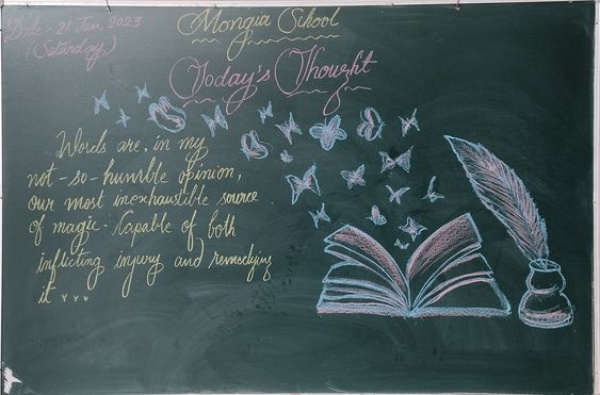 Date:- 21 Jan, 2023
(Saturday)
Mongia School
Today's Thought
Words are, in my
not-so-humble opinion,
our most inexhaustible source
of magic. Capable of both
inflicting injury and remedying
it...